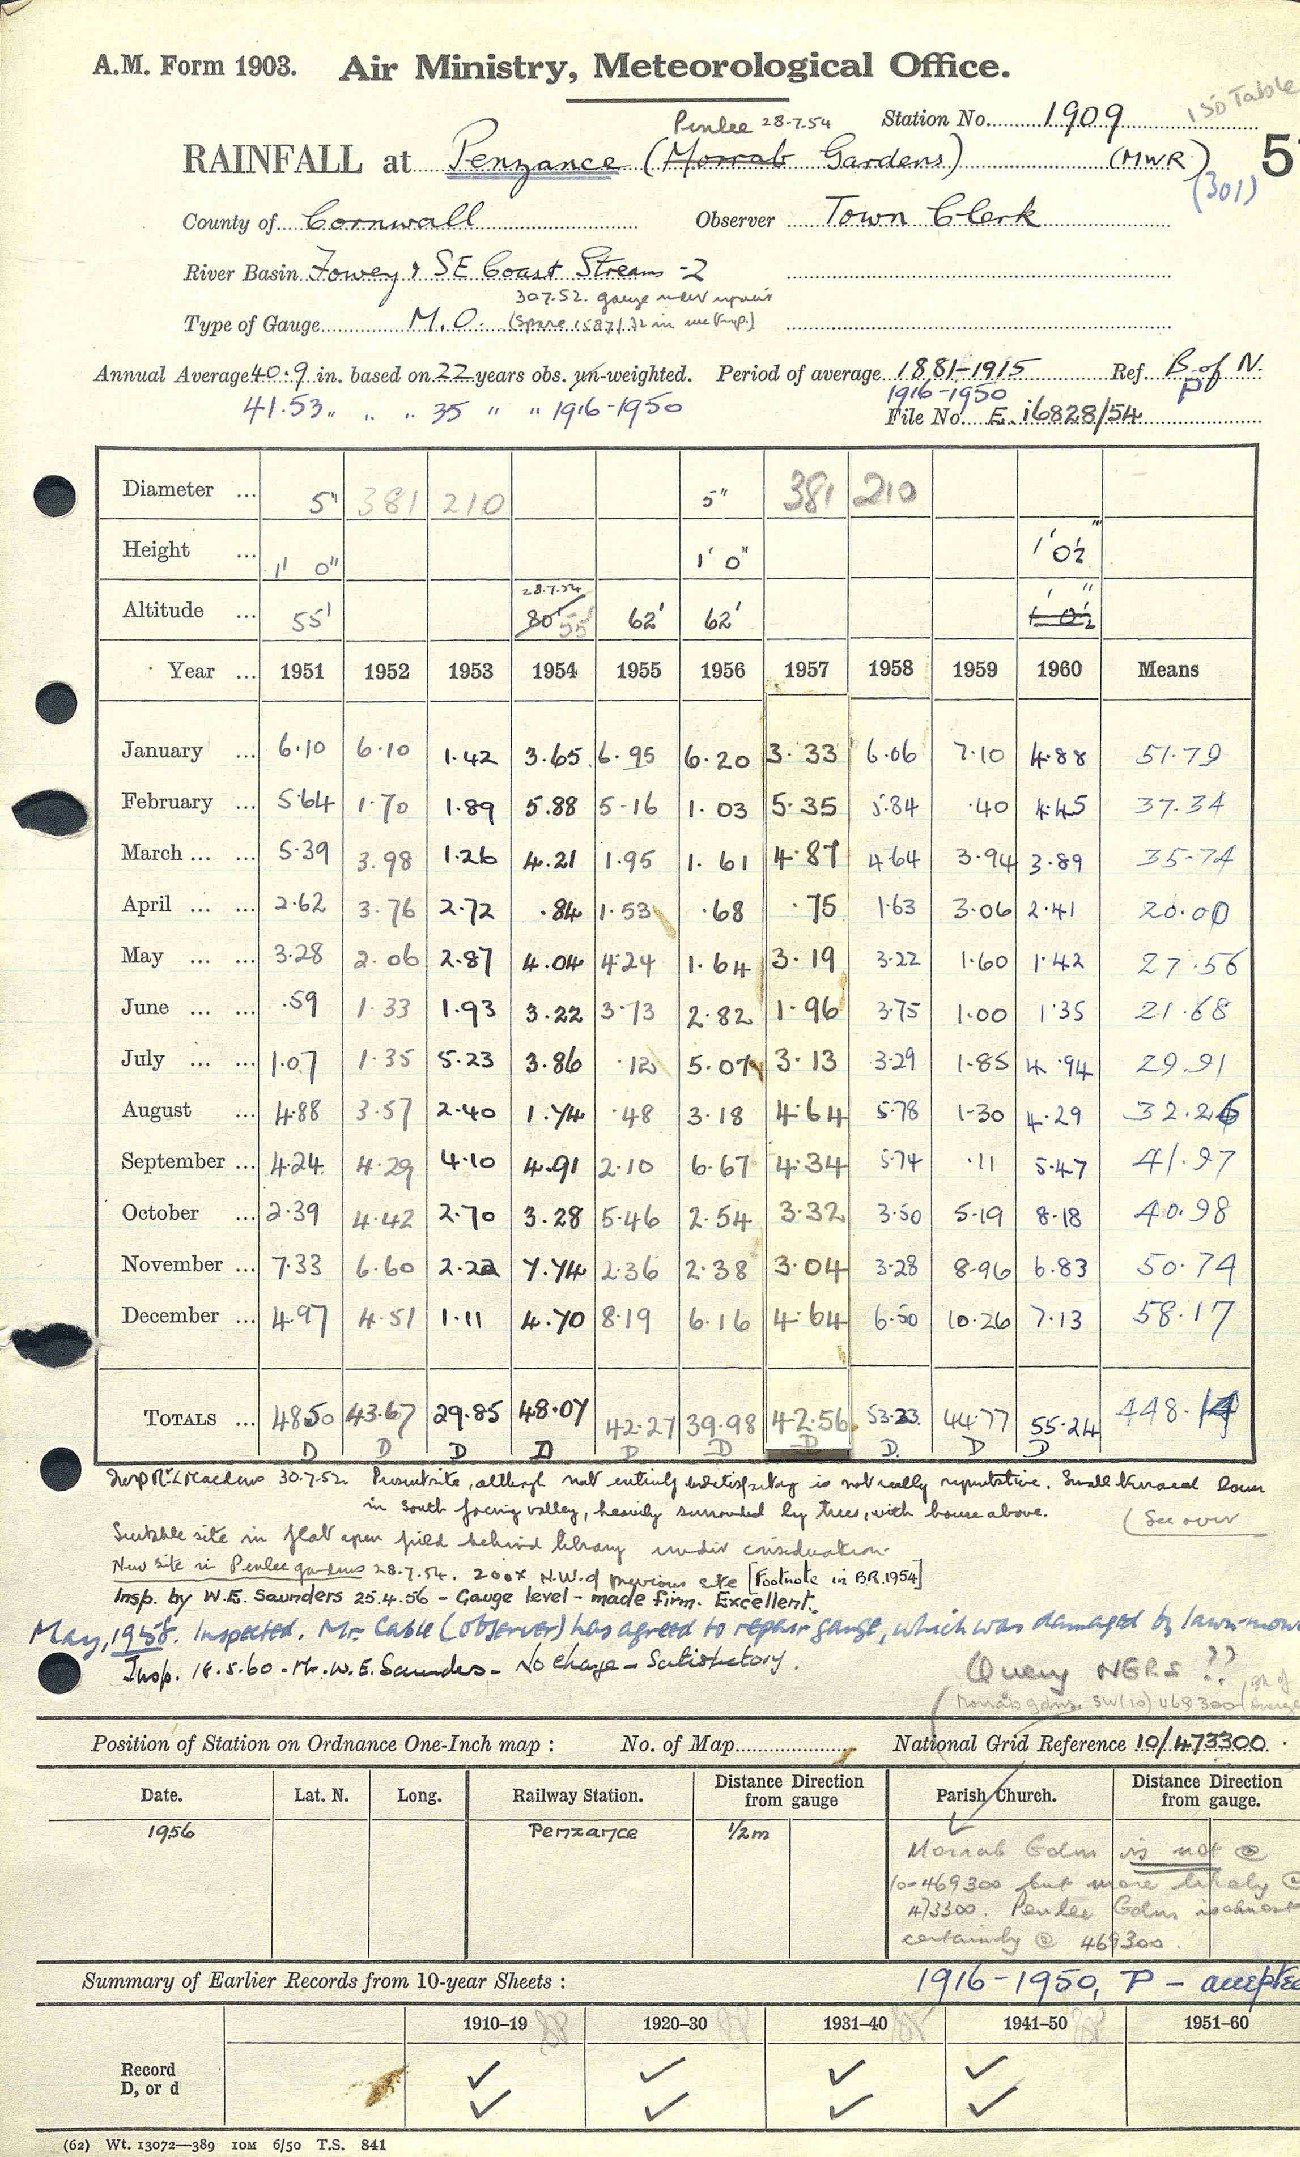 A.M. Form 1903. Air Ministry, Meteorological Office.
150 Table
Penlee 28.7.54 Station No. 1909
RAINFALL at Penzance (Morrab Gardens) (MWR) 5
(301)
County of Cornwall Observer Town Clerk
River Basin Fowey & SE Coast Streams -2
30.7.52. gauge near
Type of Gauge M.O. (Spare 1587/32 in
Annual Average 40.9 in. based on 22 years obs. un-weighted. Period of average 1881-1915 Ref. B of N.
41.53 " " " 35 " " 1916-1950 1916-1950 P
File No. E. 16828/54
Diameter ... 5" 381 210 5" 381 210
Height ... 1' 0" 1' 0" 1' 0½"
28.7.54
Altitude ... 55' 80' 55' 62' 62' 1' 0½"
Year ... 1951 1952 1953 1954 1955 1956 1957 1958 1959 1960 Means
January ... 6.10 6.10 1.42 3.65 6.95 6.20 3.33 6.06 7.10 4.88 51.79
February ... 5.64 1.70 1.89 5.88 5.16 1.03 5.35 5.84 .40 4.45 37.34
March ... ... 5.39 3.98 1.26 4.21 1.95 1.61 4.87 4.64 3.94 3.89 35.74
April ... ... 2.62 3.76 2.72 .84 1.53 .68 .75 1.63 3.06 2.41 20.00
May ... ... 3.28 2.06 2.87 4.04 4.24 1.64 3.19 3.22 1.60 1.42 27.56
June ... ... .59 1.33 1.93 3.22 3.73 2.82 1.96 3.75 1.00 1.35 21.68
July ... ... 1.07 1.35 5.23 3.86 .12 5.07 3.13 3.29 1.85 4.94 29.91
August ... 4.88 3.57 2.40 1.74 .48 3.18 4.64 5.78 1.30 4.29 32.26
September ... 4.24 4.29 4.10 4.91 2.10 6.67 4.34 5.74 .11 5.47 41.97
October ... 2.39 4.42 2.70 3.28 5.46 2.54 3.32 3.50 5.19 8.18 40.98
November ... 7.33 6.60 2.22 7.74 2.36 2.38 3.04 3.28 8.96 6.83 50.74
December ... 4.97 4.51 1.11 4.70 8.19 6.16 4.64 6.50 10.26 7.13 58.17
TOTALS ... 48.50 43.67 29.85 48.07 42.27 39.98 42.56 53.23 44.77 55.24 448.14
D D D D D D D D. D D
30.7.52. Present site, although not entirely is not really representative. Small terraced lawn
in South facing valley, heavily surrounded by trees, with house above. (See over
Suitable site in flat open field behind library under consideration.
New site in Penlee gardens 28.7.54. 200x N.W. of previous site [Footnote in B.R. 1954]
Insp. by W.E. Saunders 25.4.56 - Gauge level - made firm. Excellent.
May, 1958. Inspected. Mr. Cable (observer) has agreed to repair gauge, which was damaged by lawn-mow
Insp. 18.5.60 - Mr. W.E. Saunders - No change - Satisfactory.
Query NGRS ??
(Morrab gdns. SW(10) 468300
Position of Station on Ordnance One-Inch map : No. of Map National Grid Reference 10/473300
Date. Lat. N. Long. Railway Station. Distance Direction from gauge Parish Church. Distance Direction from gauge.
1956 Penzance ½m
Morrab Gdns is not @
10-469300 but more likely @
473300. Penlee Gdns is almost
certainly @ 469300
Summary of Earlier Records from 10-year Sheets : 1916-1950, P - accepted
1910–19 1920–30 1931–40 1941–50 1951–60
Record ✓ ✓ ✓ ✓
D, or d ✓ ✓ ✓ ✓
(62) Wt. 13072—389 10M 6/50 T.S. 841